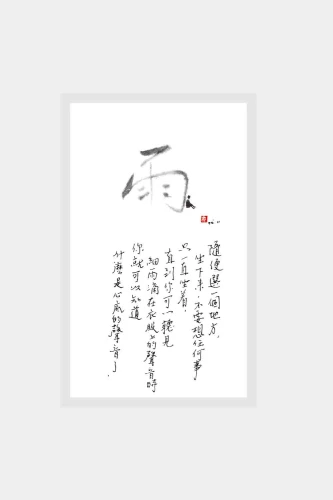 雨
隨便選一個地方，
坐下来，不要想任何事
只一直坐着，
直到你可以聽見
細雨滴在衣服上的聲音時
你就可以知道
什麼是心底的聲音了．